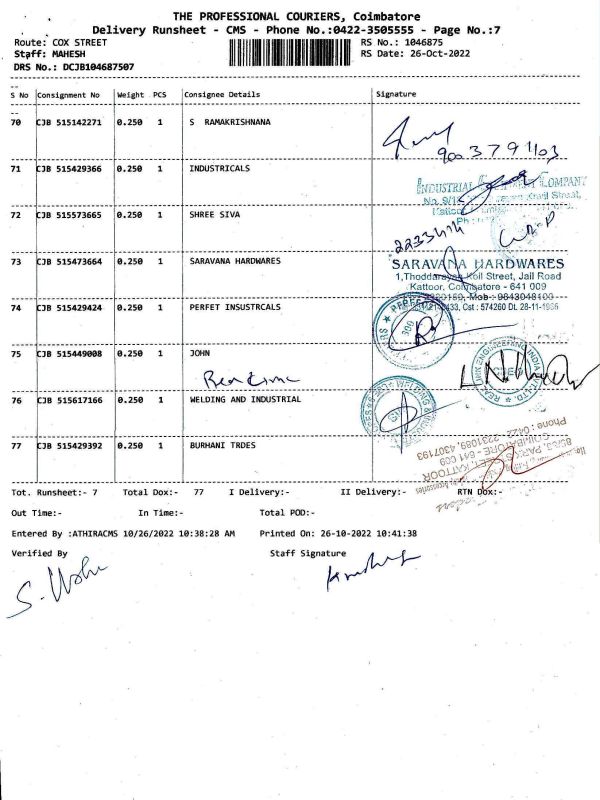 THE PROFESSIONAL COURIERS, Coimbatore
Delivery Runsheet - CMS - Phone No.:0422-3505555 - Page No.:7
Route: COX STREET RS No.: 1046875
Staff: MAHESH RS Date: 26-Oct-2022
DRS No.: DCJB104687507
S No Consignment No Weight PCS Consignee Details Signature
70 CJB 515142271 0.250 1 S RAMAKRISHNANA
9003791103
71 CJB 515429366 0.250 1 INDUSTRICALS
INDUSTRIAL COMPANY
72 CJB 515573665 0.250 1 SHREE SIVA
2233414
73 CJB 515473664 0.250 1 SARAVANA HARDWARES
SARAVANA HARDWARES
1,Thoddarayan Koil Street, Jail Road
Kattoor, Coimbatore - 641 009
Mob : 9843048100
Cst : 574260 DL 28-11-1986
74 CJB 515429424 0.250 1 PERFET INSUSTRCALS
75 CJB 515449008 0.250 1 JOHN
76 CJB 515617166 0.250 1 WELDING AND INDUSTRIAL
77 CJB 515429392 0.250 1 BURHANI TRDES
Phone : 0422 - 2231089, 4307193
COIMBATORE - 641 009
KATTOOR
Tot. Runsheet:- 7 Total Dox:- 77 I Delivery:- II Delivery:- RTN Dox:-
Out Time:- In Time:- Total POD:-
Entered By :ATHIRACMS 10/26/2022 10:38:28 AM Printed On: 26-10-2022 10:41:38
Verified By Staff Signature